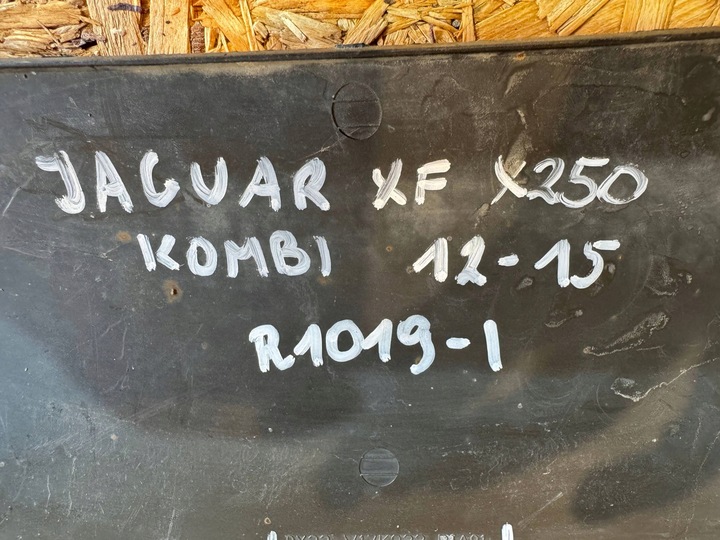 JAGUAR XF X250
KOMBI 12-15
R1019-1